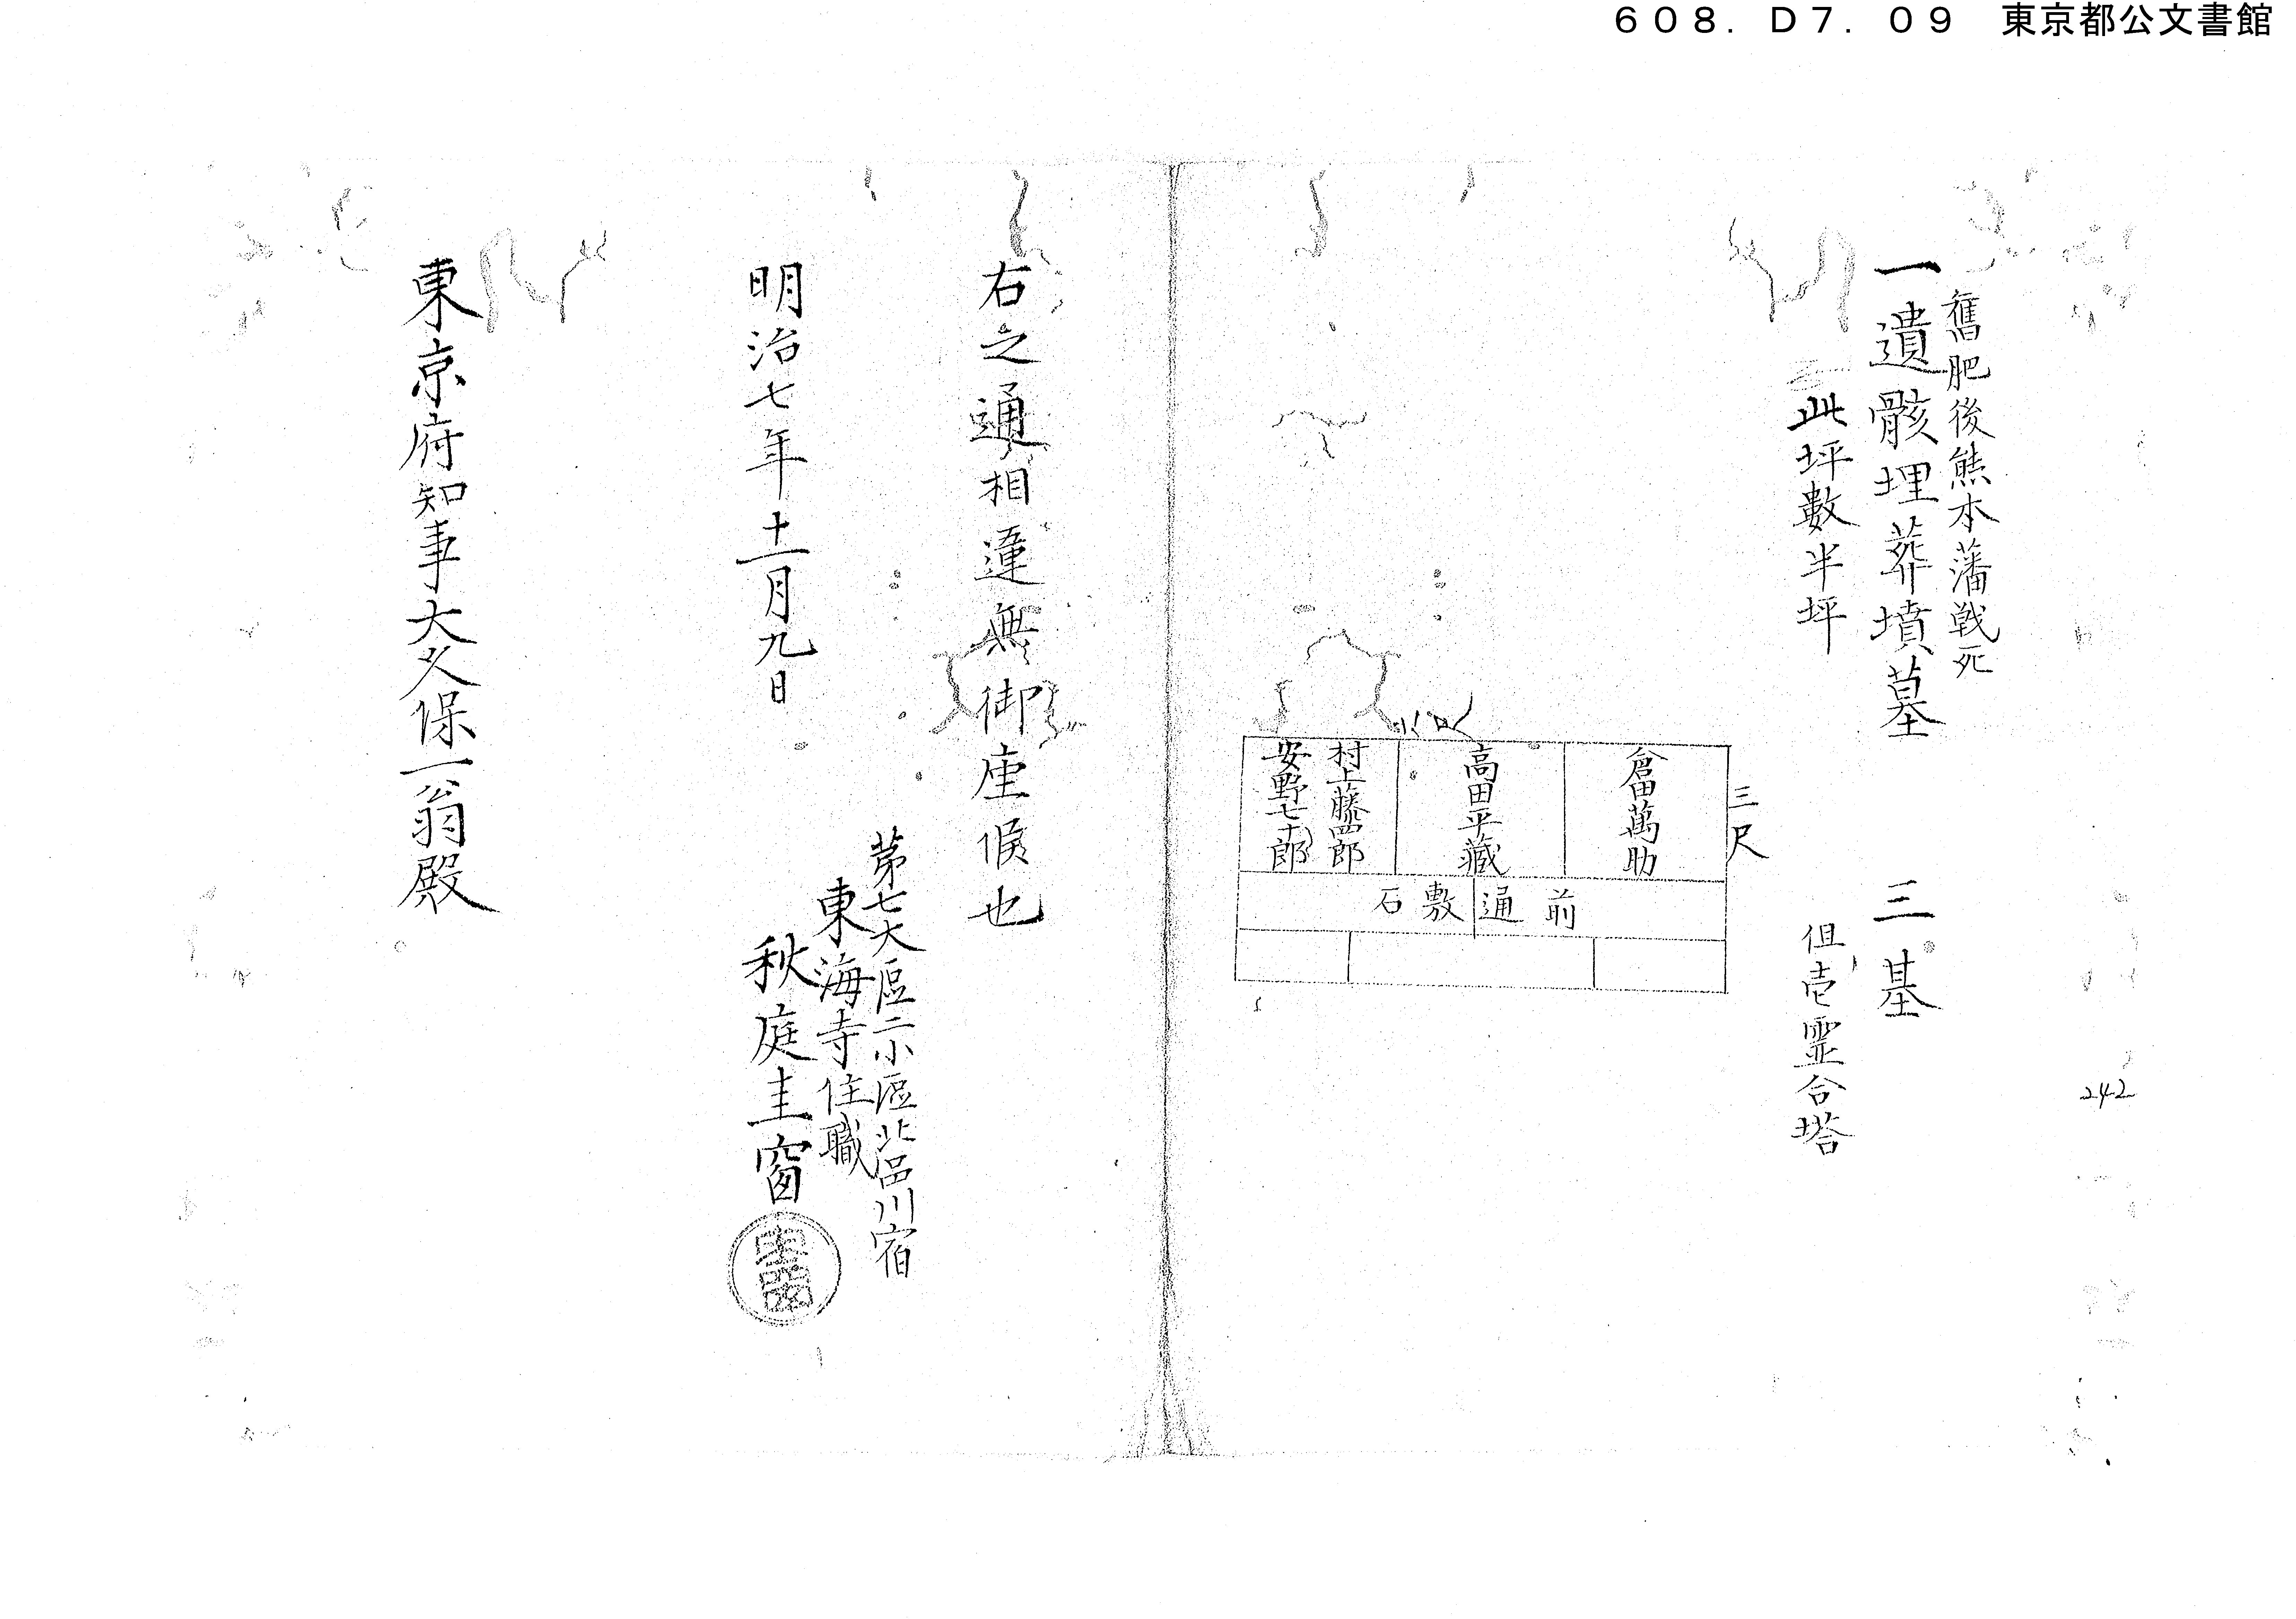 608. D7. 09 東京都公文書館
舊肥後熊本藩戦死
一遺骸埋葬墳墓 三基
此坪數半坪 但壱霊合塔
三尺
倉田萬助
高田平藏
村上藤四郎
安野七郎
前通敷石
242
右之通相違無御座候也
明治七年十一月九日
第七大區二小區北品川宿
東海寺住職
秋庭圭窗
東京府知事大久保一翁殿